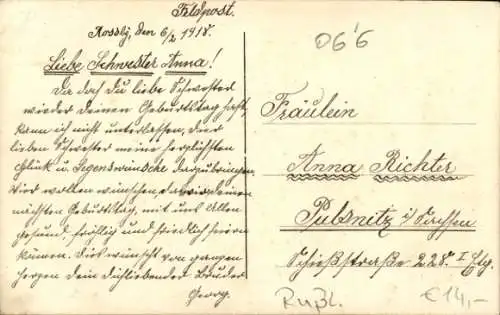 Feldpost.
Rossby, den 6/2 1918.
Liebe Schwester Anna!
Da doch Du liebe Schwester
wieder deinen Geburtstag hast,
kann ich nicht unterlassen, dier
lieben Schwester meine herzlichsten
Glück u. Segenswünsche darzubringen.
Wird wollen wünschen, das wir deinen
nächsten Geburtstag, mit uns Allen
gesund, frohlig und friedlich feiern
können. Dies wünscht von ganzen
Herzen dein dichliebender Bruder
Georg.
06'6
Fräulein
Anna Richter
Pulsnitz i/ Sachsen
Schießstraße 228. I Etg.
Rußl.
€14,-